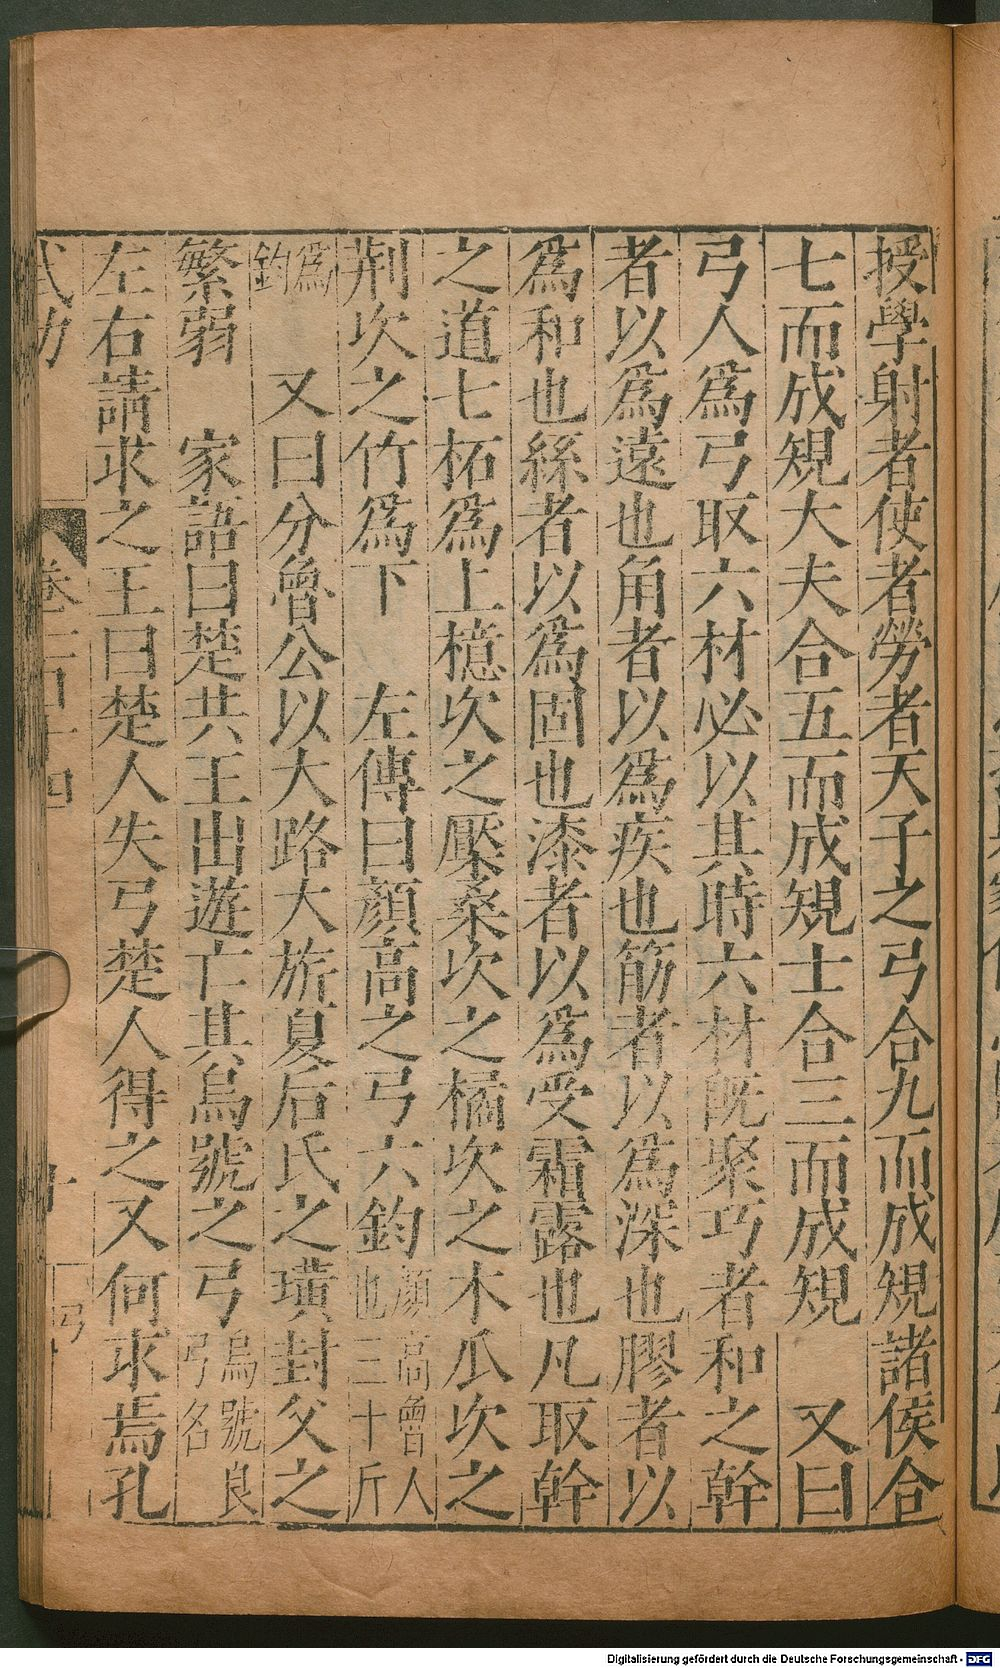 授學射者使者勞者天子之弓合九而成規諸侯合
七而成規大夫合五而成規士合三而成規　又曰
弓人爲弓取六材必以其時六材既聚巧者和之幹
者以爲遠也角者以爲疾也筋者以爲深也膠者以
爲和也絲者以爲固也漆者以爲受霜露也凡取幹
之道七柘爲上檍次之檿桑次之橘次之木瓜次之
荆次之竹爲下　左傳曰顏高之弓六鈞顏高魯人也三十斤
爲鈞　又曰分魯公以大路大旂夏后氏之璜封父之
繁弱　家語曰楚共王出遊亡其烏號之弓烏號良弓名
左右請求之王曰楚人失弓楚人得之又何求焉孔
卷
弓
Digitalisierung gefördert durch die Deutsche Forschungsgemeinschaft - DFG